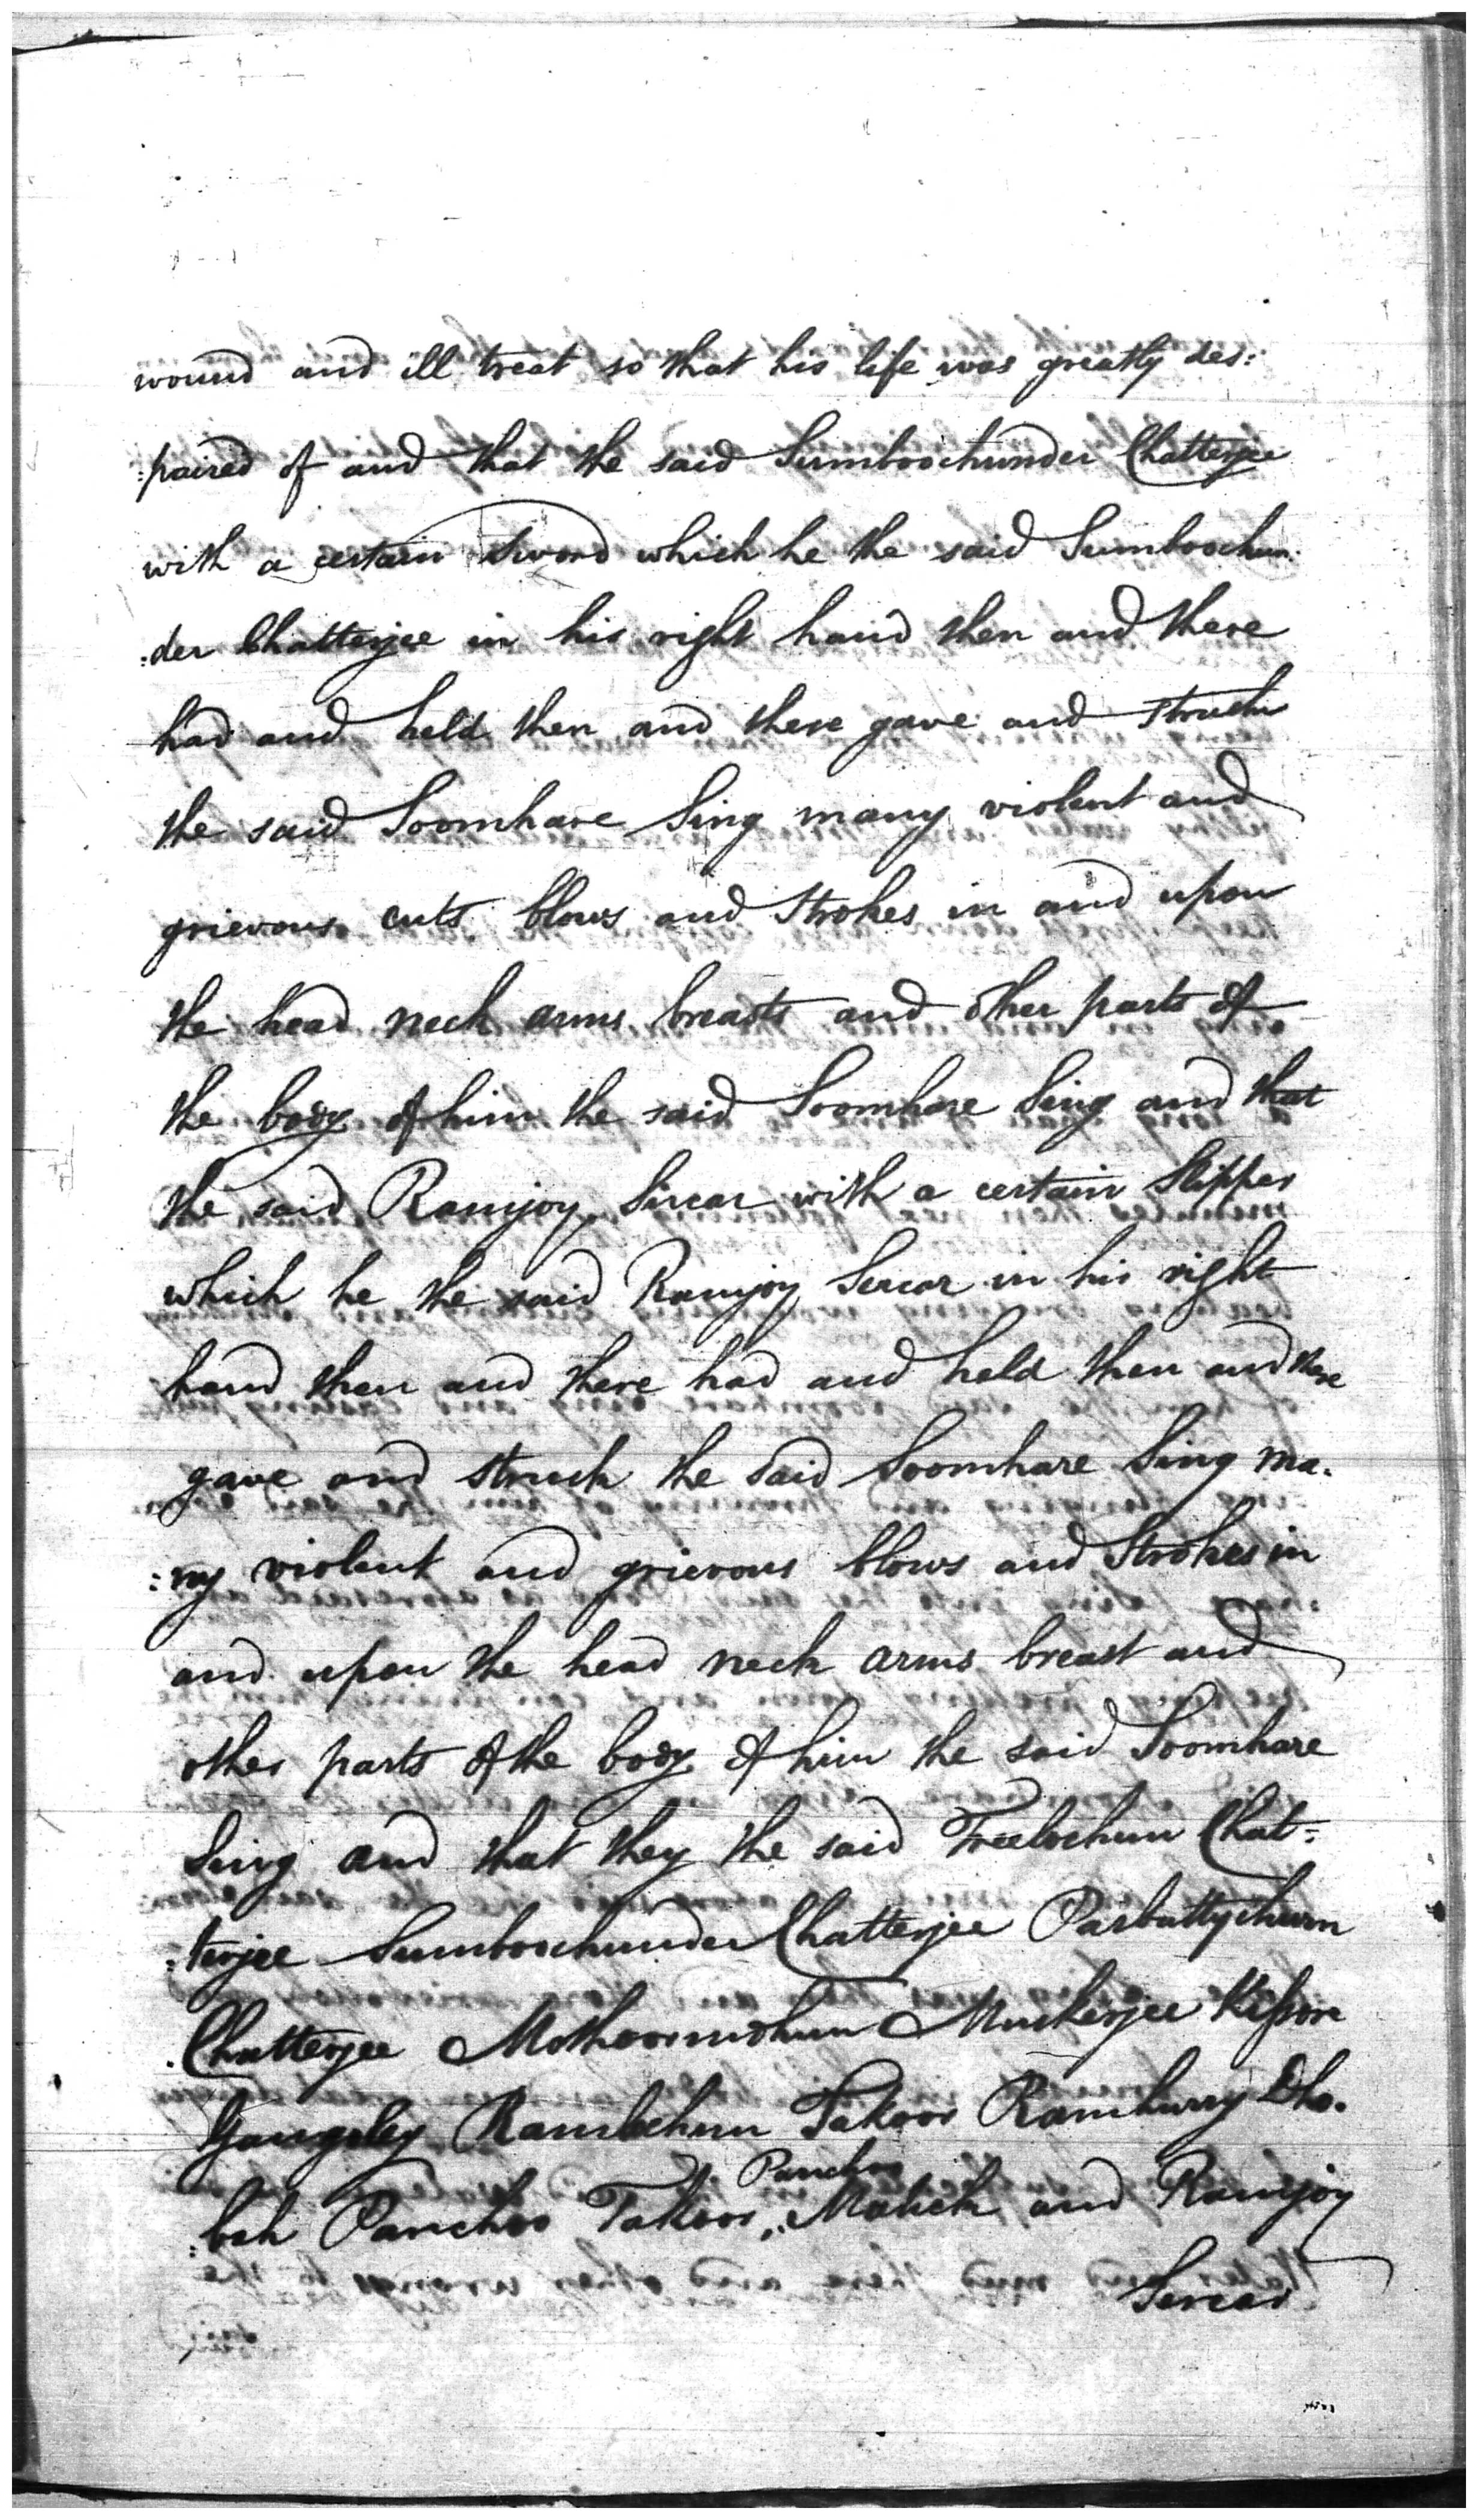 wound and ill treat so that his life was greatly des:
:paired of and that the said Sumboochunder Chatterjee
with a certain Sword which he the said Sumboochun:
:der Chatterjee in his right hand then and there
had and held then and there gave and struck
the said Soomhare Sing many violent and
grievous cuts blows and Strokes in and upon
the head neck arms breasts and other parts of
the body of him the said Soomhare Sing and that
the said Ramjoy Sircar with a certain Slipper
which he the said Ramjoy Sircar in his right
hand then and there had and held then and there
gave and struck the said Soomhare Sing ma:
:ny violent and grievous blows and Strokes in
and upon the head neck arms breast and
other parts of the body of him the said Soomhare
Sing and that they the said Treelochun Chat:
:terjee Sumboochunder Chatterjee Parbuttychurn
Chatterjee Mothoormohun Muckerjee Kissore
Gangoley Ramlochun Takoor Ramhurry Dho:
:bah Panchoo Takoor Panchoo Malick and Ramjoy
Sircar